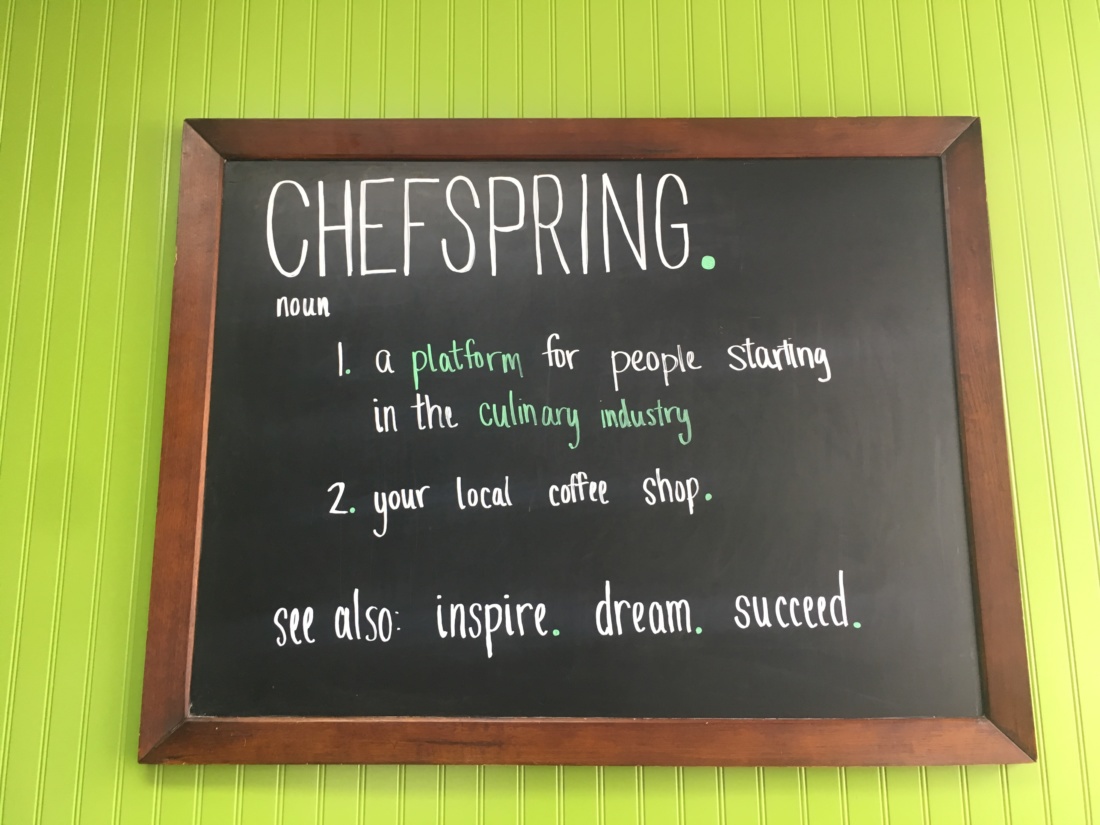 CHEFSPRING.
noun
1. a platform for people starting
in the culinary industry
2. your local coffee shop.
see also: inspire. dream. succeed.